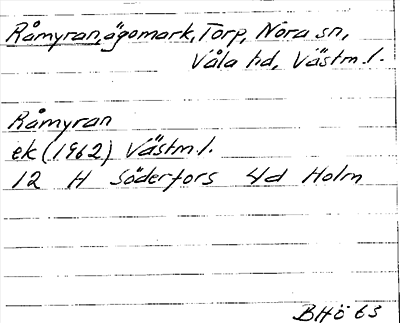 Råmyran, ägomark, Torp, Nora sn,
Våla hd, Västm.l.
Råmyran
ek (1962) Västm.l.
12 H Söderfors 4d Holm
BHö 63